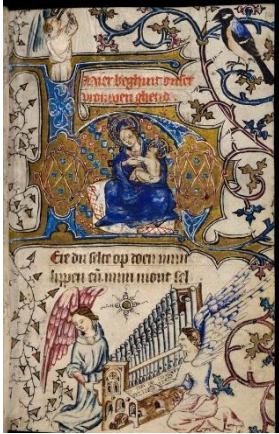 hier beghint onser
vrouwen ghetide
Ere du selte op doen minn
lippen en minn mont sel